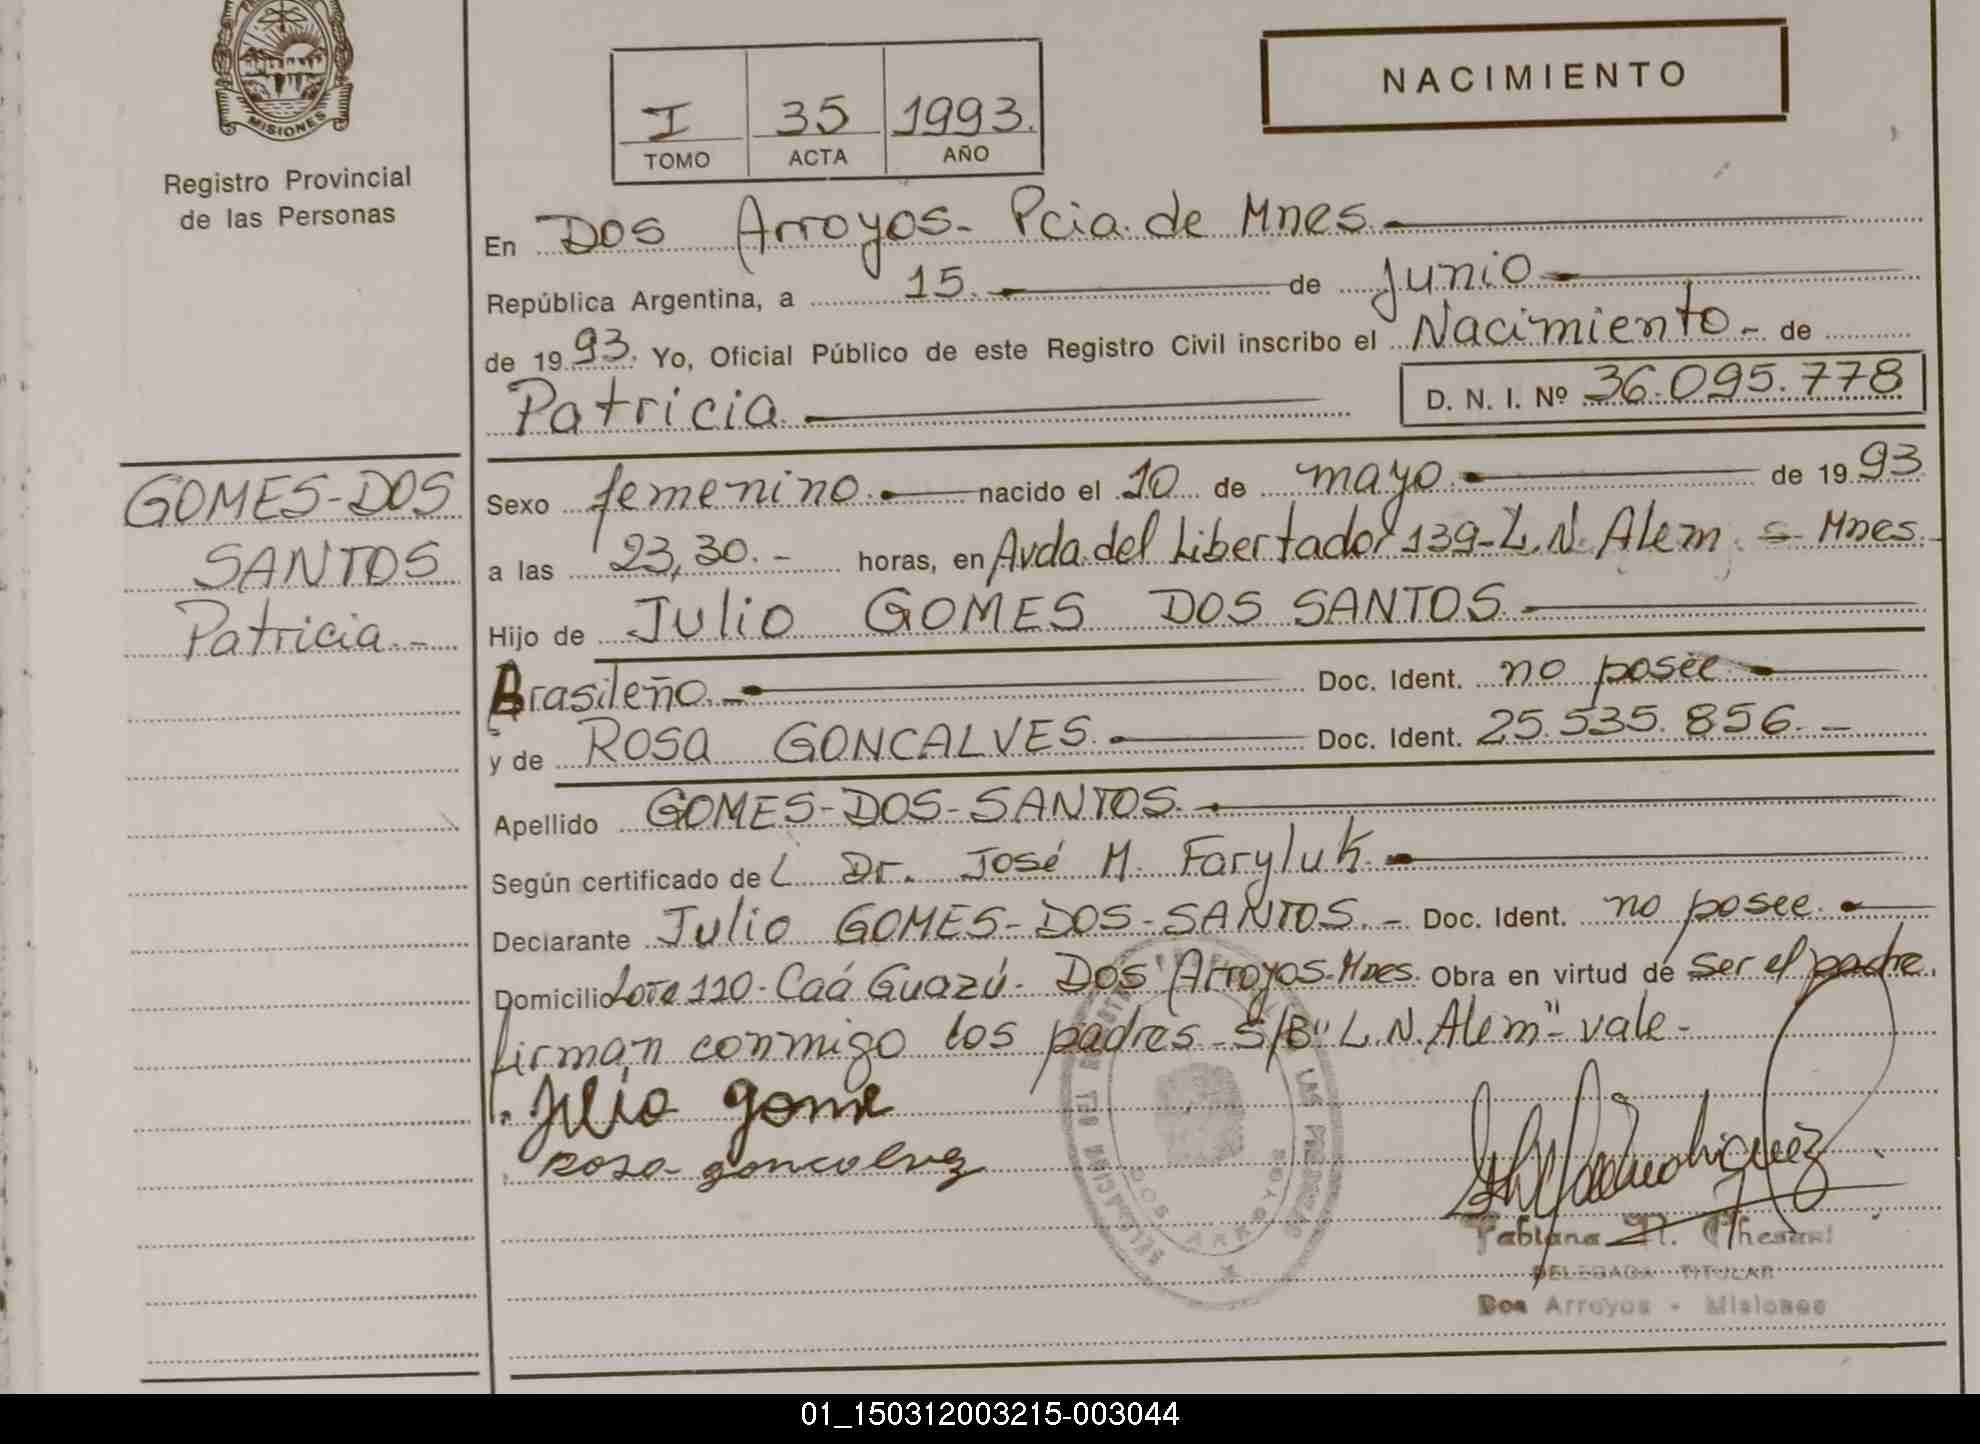 MISIONES
Registro Provincial
de las Personas
I 35 1993.
TOMO ACTA AÑO
NACIMIENTO
En Dos Arroyos- Pcia. de Mnes.
República Argentina, a 15. de Junio
de 1993. Yo, Oficial Público de este Registro Civil inscribo el Nacimiento.- de
Patricia D. N. I. Nº 36.095.778
GOMES-DOS
SANTOS
Patricia.-
Sexo femenino. nacido el 10 de mayo. de 1993
a las 23,30.- horas, en Avda. del Libertador 139-L.N. Alem. - Mnes.
Hijo de Julio GOMES DOS SANTOS.
Brasileño.- Doc. Ident. no posee
y de Rosa GONCALVES. Doc. Ident. 25.535.856.-
Apellido GOMES-DOS-SANTOS.
Según certificado de L Dr. José M. Faryluk.
Declarante Julio GOMES-DOS-SANTOS.- Doc. Ident. no posee.
Domicilio Lote 110-Caá Guazú- Dos Arroyos-Mnes. Obra en virtud de ser el padre.
firman conmigo los padres - S/B" L.N. Alem"- vale-
Julio gome
Rosa
DOS ARROYOS
Fabiana
DELEGADA TITULAR
Dos Arroyos - Misiones
01_150312003215-003044